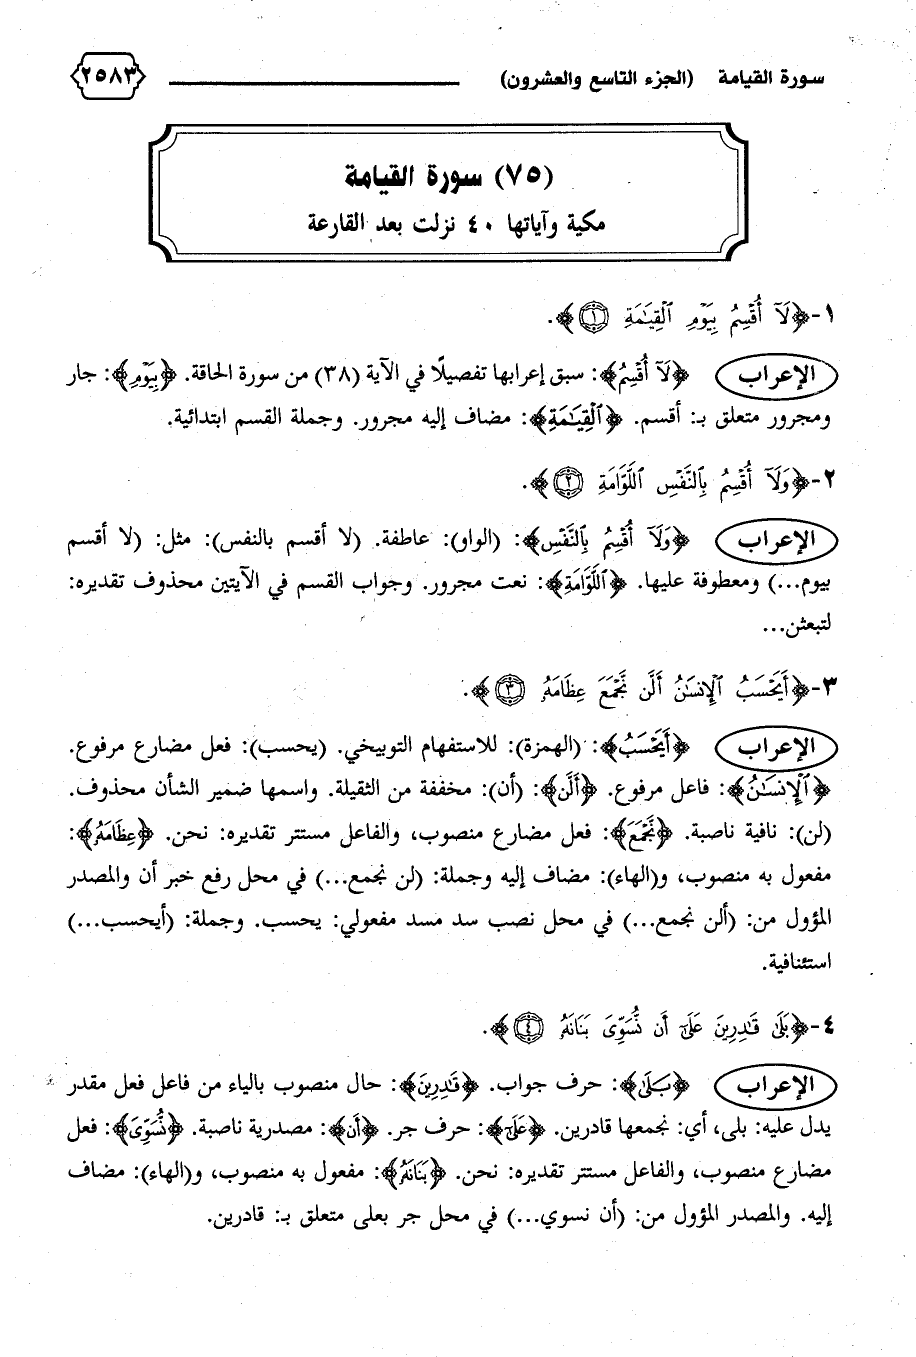 سورة القيامة (الجزء التاسع والعشرون) ٢٥٨٣
(٧٥) سورة القيامة
مكية وآياتها ٤٠ نزلت بعد القارعة
١- ﴿لَآ أُقْسِمُ بِيَوْمِ ٱلْقِيَٰمَةِ ١﴾.
الإعراب ﴿لَآ أُقْسِمُ﴾: سبق إعرابها تفصيلًا في الآية (٣٨) من سورة الحاقة. ﴿بِيَوْمِ﴾: جار
ومجرور متعلق بـ: أقسم. ﴿ٱلْقِيَٰمَةِ﴾: مضاف إليه مجرور. وجملة القسم ابتدائية.
٢- ﴿وَلَآ أُقْسِمُ بِٱلنَّفْسِ ٱللَّوَّامَةِ ٢﴾.
الإعراب ﴿وَلَآ أُقْسِمُ بِٱلنَّفْسِ﴾: (الواو): عاطفة. (لا أقسم بالنفس): مثل: (لا أقسم
بيوم...) ومعطوفة عليها. ﴿ٱللَّوَّامَةِ﴾: نعت مجرور. وجواب القسم في الآيتين محذوف تقديره:
لتبعثن...
٣- ﴿أَيَحْسَبُ ٱلْإِنسَٰنُ أَلَّن نَّجْمَعَ عِظَامَهُۥ ٣﴾.
الإعراب ﴿أَيَحْسَبُ﴾: (الهمزة): للاستفهام التوبيخي. (يحسب): فعل مضارع مرفوع.
﴿ٱلْإِنسَٰنُ﴾: فاعل مرفوع. ﴿أَلَّن﴾: (أن): مخففة من الثقيلة. واسمها ضمير الشأن محذوف.
(لن): نافية ناصبة. ﴿نَّجْمَعَ﴾: فعل مضارع منصوب، والفاعل مستتر تقديره: نحن. ﴿عِظَامَهُۥ﴾:
مفعول به منصوب، و(الهاء): مضاف إليه وجملة: (لن نجمع...) في محل رفع خبر أن والمصدر
المؤول من: (ألن نجمع...) في محل نصب سد مسد مفعولي: يحسب. وجملة: (أيحسب...)
استئنافية.
٤- ﴿بَلَىٰ قَٰدِرِينَ عَلَىٰٓ أَن نُّسَوِّىَ بَنَانَهُۥ ٤﴾.
الإعراب ﴿بَلَىٰ﴾: حرف جواب. ﴿قَٰدِرِينَ﴾: حال منصوب بالياء من فاعل فعل مقدر
يدل عليه: بلى، أي: نجمعها قادرين. ﴿عَلَىٰٓ﴾: حرف جر. ﴿أَن﴾: مصدرية ناصبة. ﴿نُّسَوِّىَ﴾: فعل
مضارع منصوب، والفاعل مستتر تقديره: نحن. ﴿بَنَانَهُۥ﴾: مفعول به منصوب، و(الهاء): مضاف
إليه. والمصدر المؤول من: (أن نسوي...) في محل جر بعلى متعلق بـ: قادرين.